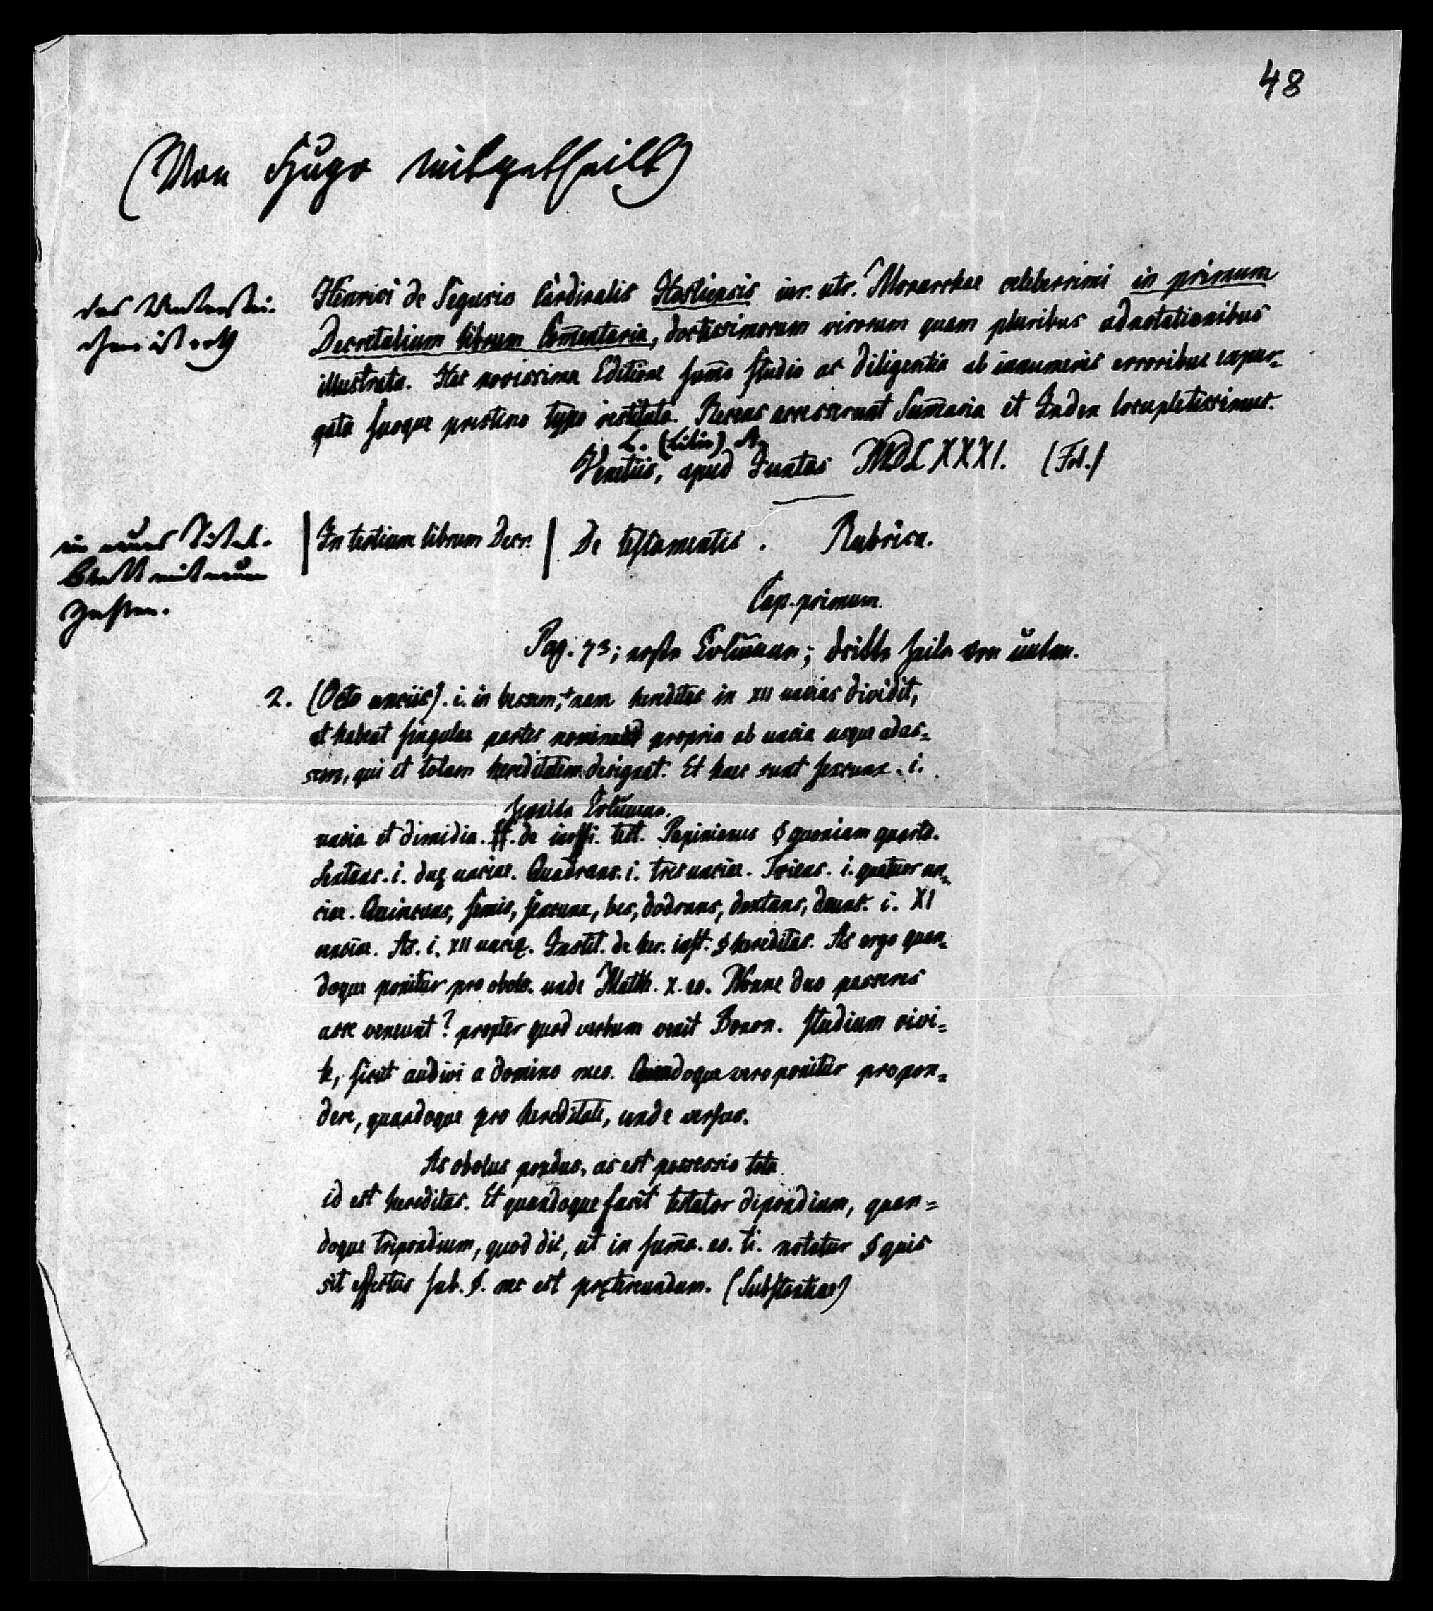 48
(Von Hugo mitgetheilt)
das Unterstri-
chene ist roth
Henrici de Segusio Cardinalis Hostiensis iur. utr. Monarchae celeberrimi in primum
Decretalium librum Com̄entaria, doctissimorum virorum quam pluribus adnotationibus
illustrata. Hac novissima Editione sum̄o studio ac diligentia ab innumeris erroribus expur-
gata suoque pristino typo restituta. Recens accesserunt Sum̄aria et Index locupletissimus.
L. (Lilie) A.
Venetiis, apud Iuntas MDLXXXI. (Fol.)
ein neues Titel-
blatt mit neuen
Zahlen.
In tertium librum Decr. De testamentis. Rubrica.
Cap. primum.
Pag. 73; erste Columne; dritte Zeile von unten.
2. (Octo unciis). i. in bessem, nam hereditas in XII uncias dividit,
et habent singulae partes nomina propria ab uncia usque ad as-
sem, qui et totam hereditatem designat. Et haec sunt sescunx. i.
zweite Columne.
uncia et dimidia. ff. de inoffi. test. Papinianus § quoniam quarta.
Sextans. i. duę unciae. Quadrans. i. tres unciae. Triens. i. quatuor un-
ciae. Quincunx, semis, septunx, bes, dodrans, dextans, deunx. i. XI
unciae. As. i. XII uncię. Instit. de her. inst. § hereditas. As ergo quan-
doque ponitur pro obolo. unde Matth. X. eo. Nonne duo passeres
asse veneunt? propter quod verbum venit Bonon. studium civi-
le, sicut audivi a domino meo. Quandoque vero ponitur pro pon-
dere, quandoque pro hereditate, unde versus.
As obolus pondus, as est possessio tota
id est hereditas. Et quandoque facit testator dipondium, quan-
doque tripondium, quod dic, ut in sum̄a. eo. ti. notatur § quis
sit effectus sub. §. nec est prętereundum. (Substantiae)